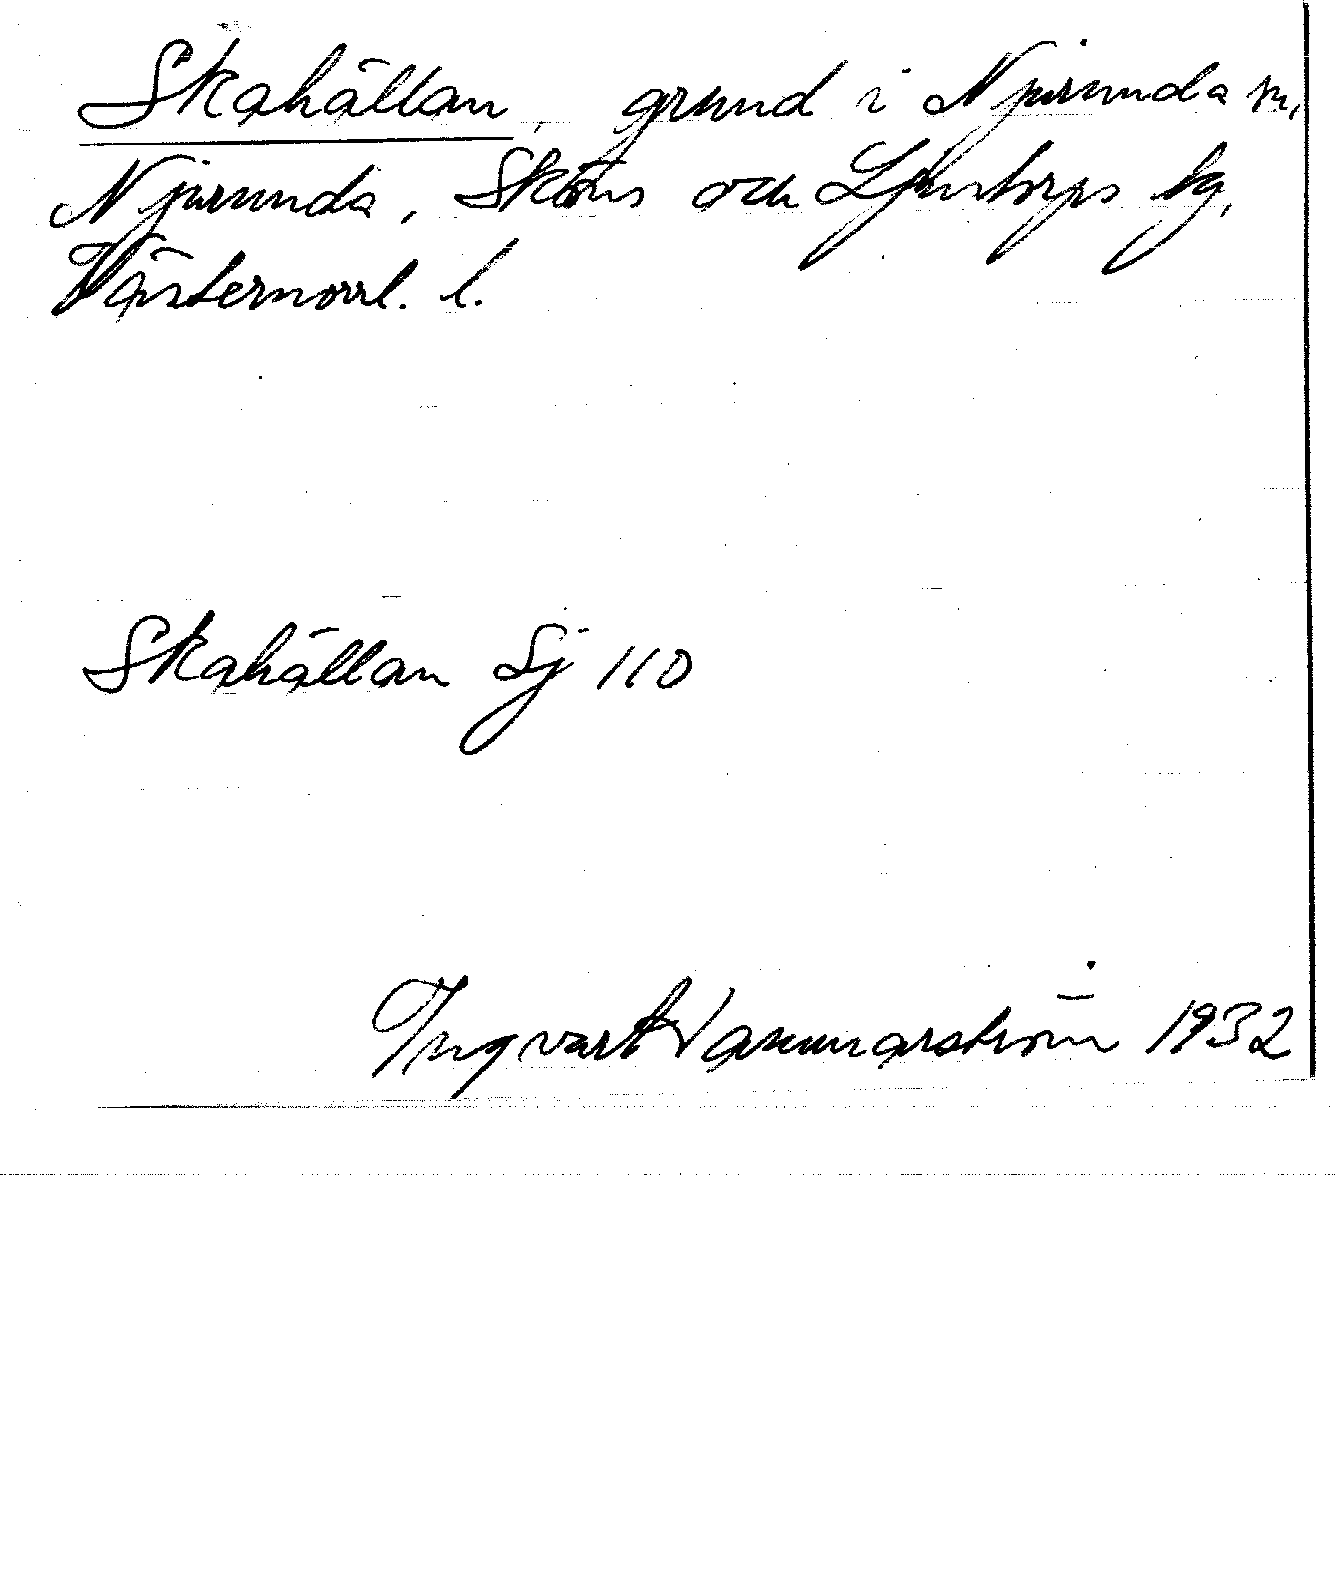 Skahällan, grund i Njurunda sn,
Njurunda, Sköns och Ljustorps tg,
Västernorrl. l.
Skahällan Sj 110
Ingvart 1932